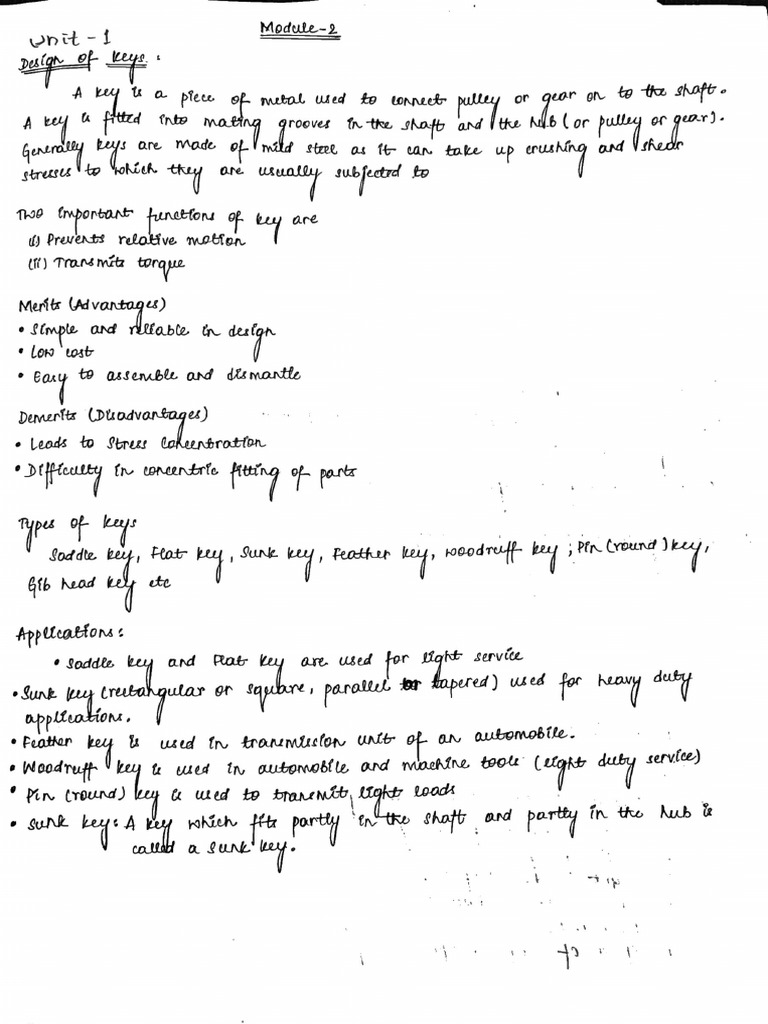 Module-2
Unit-1
Design of keys:
A key is a piece of metal used to connect pulley or gear on to the shaft.
A key is fitted into mating grooves in the shaft and the hub (or pulley or gear).
Generally keys are made of mild steel as it can take up crushing and shear
stresses to which they are usually subjected to
Two important functions of key are
(i) Prevents relative motion
(ii) Transmits torque
Merits (Advantages)
• Simple and reliable in design
• Low cost
• Easy to assemble and dismantle
Demerits (Disadvantages)
• Leads to stress concentration
• Difficulty in concentric fitting of parts
Types of keys
Saddle key, Flat key, Sunk key, Feather key, Woodruff key, Pin (round) key,
Gib head key etc
Applications:
• Saddle key and Flat key are used for light service
• Sunk key (rectangular or square, parallel or tapered) used for heavy duty
applications.
• Feather key is used in transmission unit of an automobile.
• Woodruff key is used in automobile and machine tools (light duty service)
• Pin (round) key is used to transmit light loads
• Sunk key: A key which fits partly in the shaft and partly in the hub is
called a sunk key.